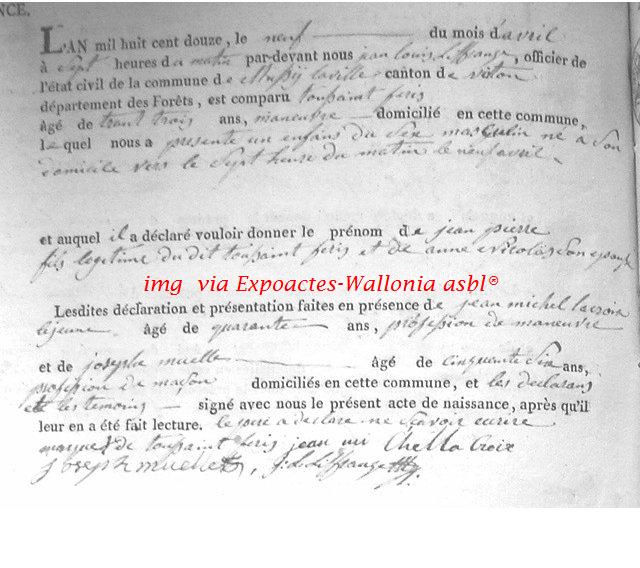 NCE.
L'AN mil huit cent douze, le neuf du mois d'avril
à Sept heures du matin par-devant nous jean louis Liffrange, officier de
l'état civil de la commune de Mussy laville canton de virton
département des Forêts, est comparu toussaint feris
âgé de trant trois ans, maneuvre domicilié en cette commune,
lequel nous a presente un enfans du Sex masculin né a Son
domicile vers le Sept heure du matin le neuf avril
et auquel il a déclaré vouloir donner le prénom de jean pierre
fils legitime du dit toussaint feris et de anne nicolas Son epouse
img via Expoactes-Wallonia asbl®
Lesdites déclaration et présentation faites en présence de jean michel lacroix
lejeune âgé de quarante ans, profession de maneuvre
et de josephe muelle âgé de cinquente Six ans,
profession de maçon domiciliés en cette commune, et les declarans
et les temoins signé avec nous le présent acte de naissance, après qu'il
leur en a été fait lecture. a declare ne Scavoir ecrire
marque de toussaint feris jean mi Chel la Croix
Joseph muelle, J. L. Liffrange